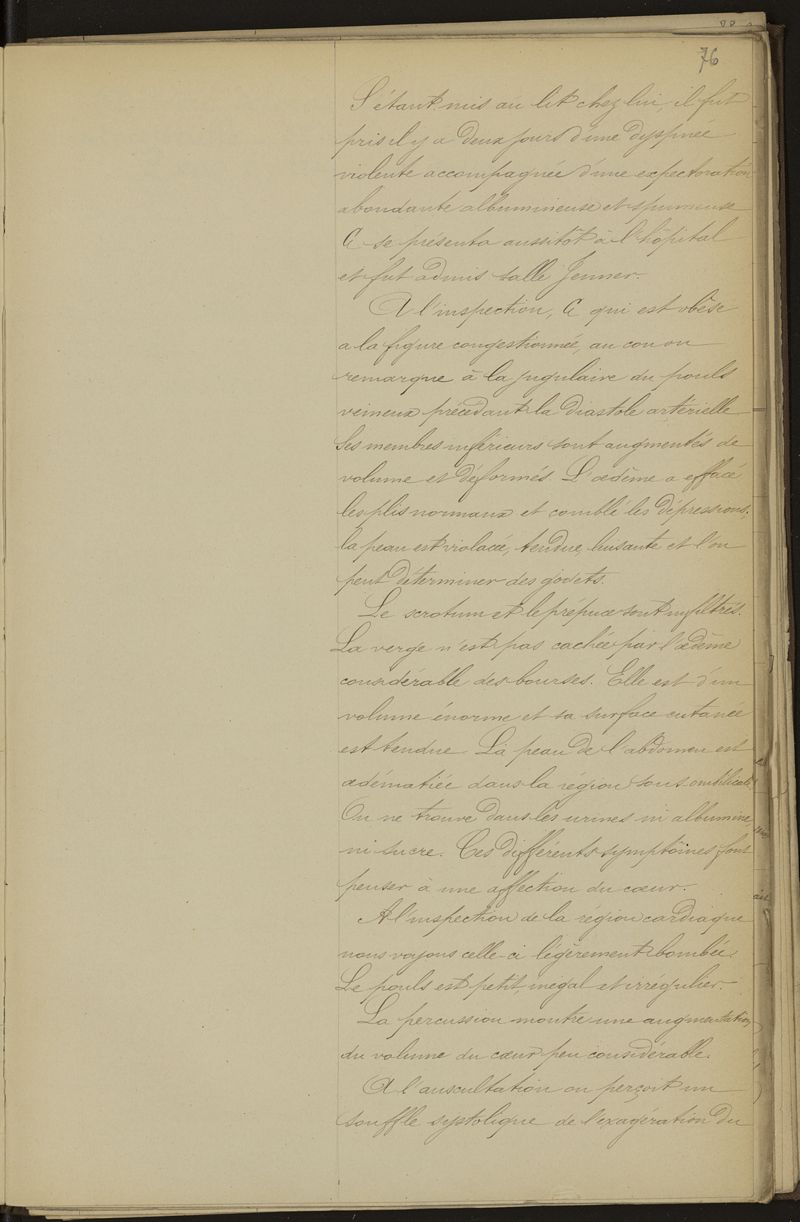 76
S'étant mis au lit chez lui, il fut
pris il y a deux jours d'une dyspnée
violente accompagnée d'une expectoration
abondante albumineuse et spumeuse
C se présenta aussitôt à l'hôpital
et fut admis salle Jenner.
A l'inspection, C qui est obèse
a la figure congestionnée, au cou on
remarque à la jugulaire du pouls
veineux précédant la diastole artérielle
Ses membres inférieurs sont augmentés de
volume et déformés. L'œdème a effacé
les plis normaux et comblé les dépressions;
la peau est violacée, tendue, luisante et l'on
peut déterminer des godets.
Le scrotum et le prépuce sont infiltrés.
La verge n'est pas cachée par l'œdème
considérable des bourses. Elle est d'un
volume énorme et sa surface cutanée
est tendue. La peau de l'abdomen est
œdématiée dans la région sous ombilicale
On ne trouve dans les urines ni albumine,
ni sucre. Ces différents symptômes font
penser à une affection du cœur.
A l'inspection de la région cardiaque
nous voyons celle-ci légèrement bombée.
Le pouls est petit, inégal et irrégulier.
La percussion montre une augmentation
du volume du cœur peu considérable.
A l'auscultation on perçoit un
souffle systolique de l'exagération du